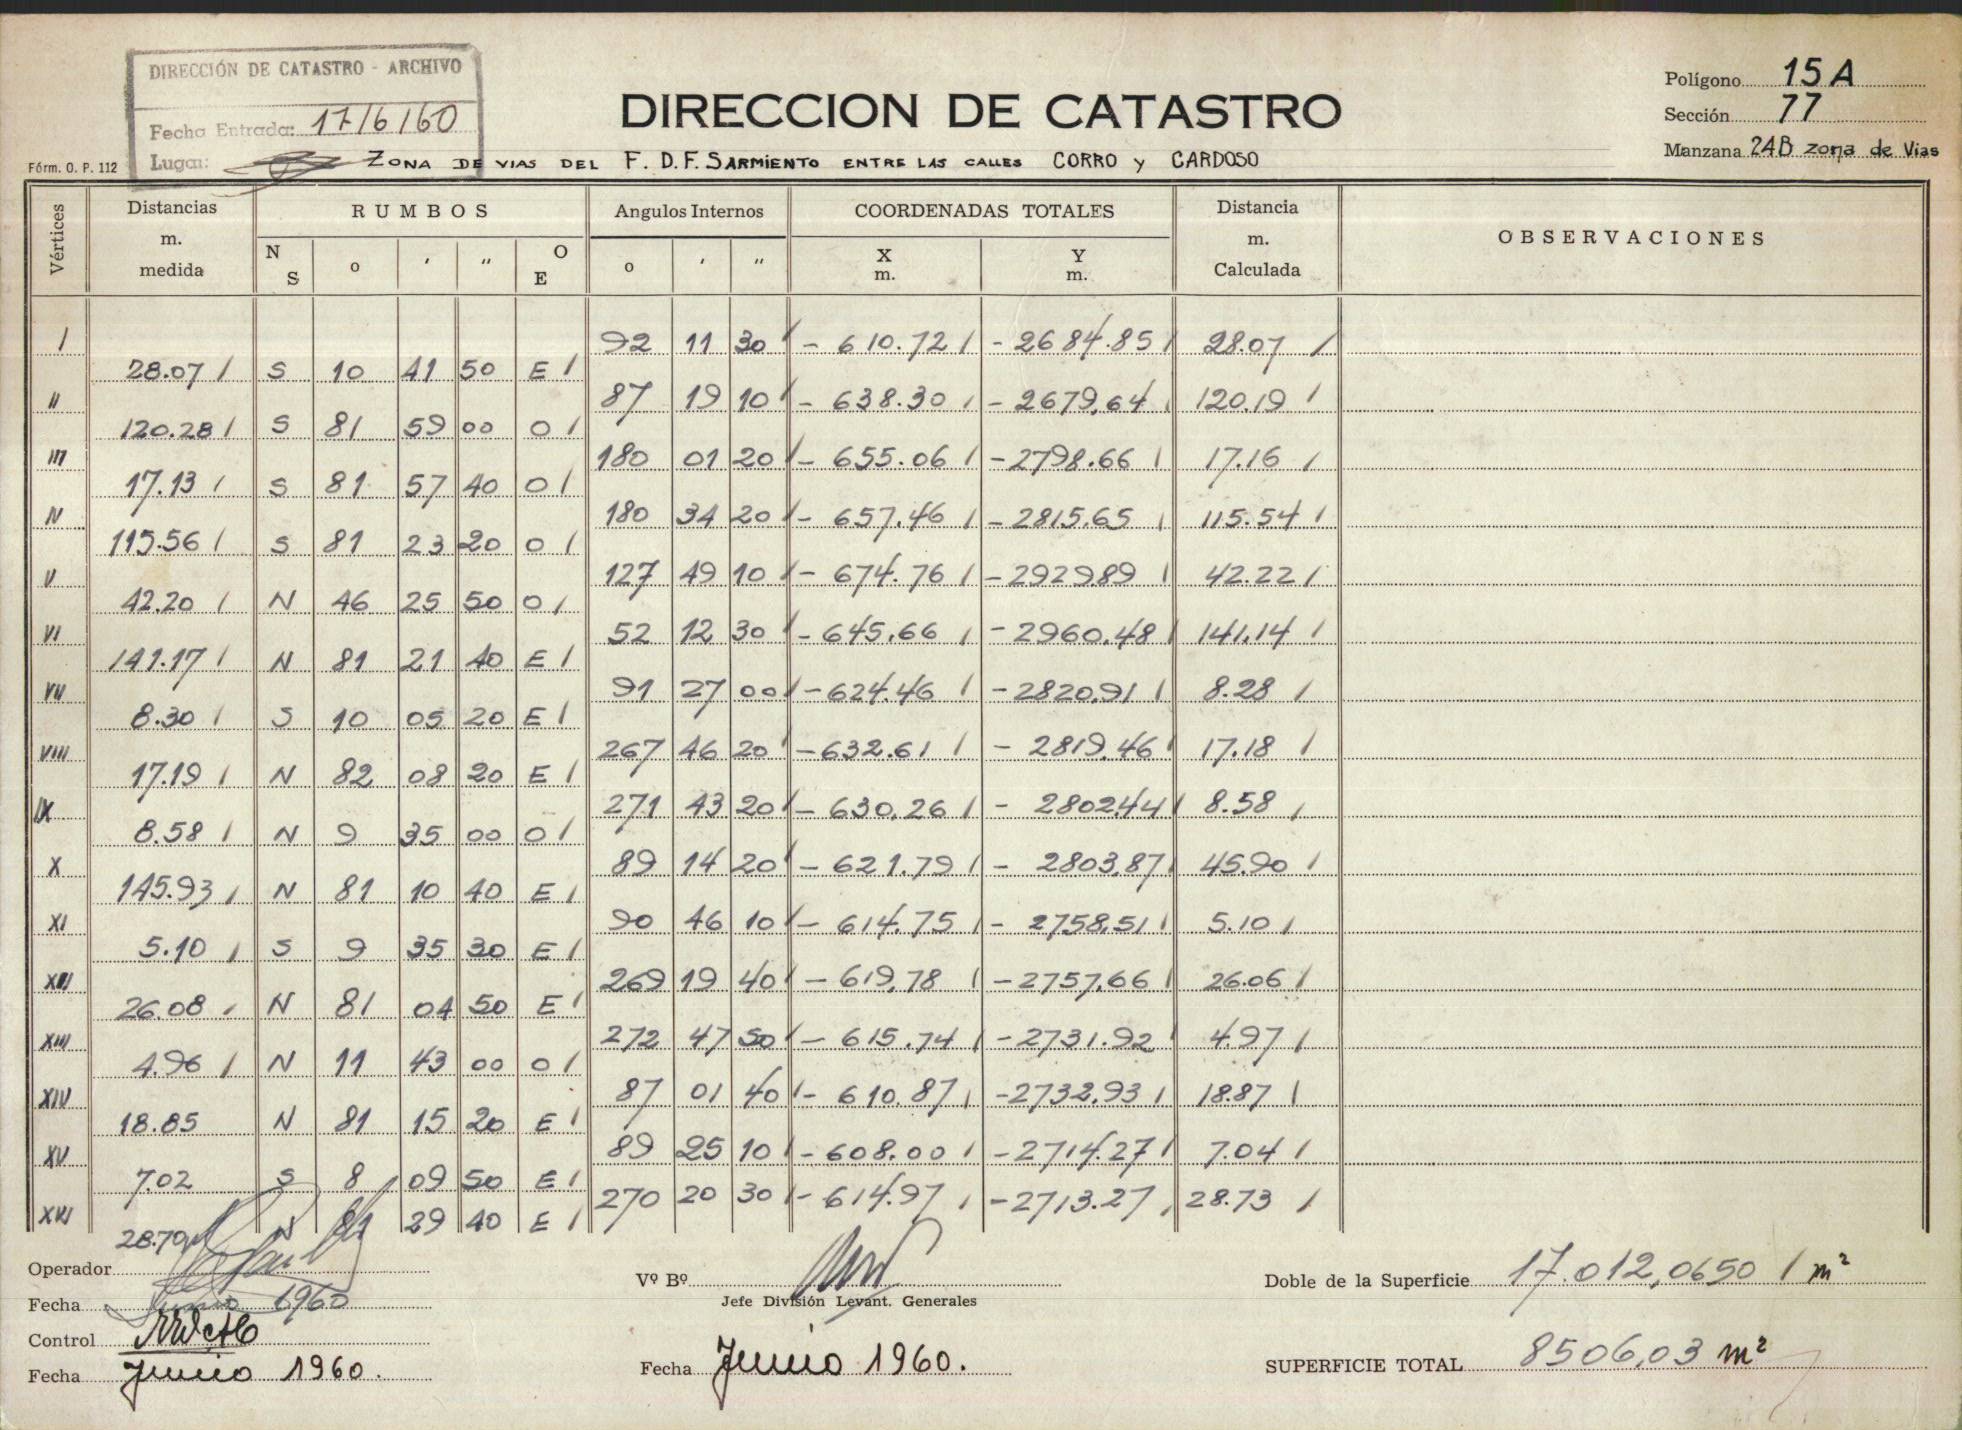 DIRECCIÓN DE CATASTRO - ARCHIVO
Fecha Entrada: 17/6/60
Lugar:
DIRECCION DE CATASTRO
Polígono 15A
Sección 77
Manzana 24B zona de Vias
Fórm. O. P. 112
ZONA DE VIAS DEL F. D. F. SARMIENTO ENTRE LAS CALLES CORRO y CARDOSO
Vértices Distancias m. medida RUMBOS Angulos Internos COORDENADAS TOTALES Distancia m. Calculada OBSERVACIONES
N S o ' " O E o ' " X m. Y m.
I 92 11 30 - 610.72 - 2684.85 28.07
28.07 S 10 41 50 E
II 87 19 10 - 638.30 - 2679.64 120.19
120.28 S 81 59 00 O
III 180 01 20 - 655.06 - 2798.66 17.16
17.13 S 81 57 40 O
IV 180 34 20 - 657.46 - 2815.65 115.54
115.56 S 81 23 20 O
V 127 49 10 - 674.76 - 2929.89 42.22
42.20 N 46 25 50 O
VI 52 12 30 - 645.66 - 2960.48 141.14
141.17 N 81 21 40 E
VII 91 27 00 - 624.46 - 2820.91 8.28
8.30 S 10 05 20 E
VIII 267 46 20 - 632.61 - 2819.46 17.18
17.19 N 82 08 20 E
IX 271 43 20 - 630.26 - 2802.44 8.58
8.58 N 9 35 00 O
X 89 14 20 - 621.79 - 2803.87 45.90
145.93 N 81 10 40 E
XI 90 46 10 - 614.75 - 2758.51 5.10
5.10 S 9 35 30 E
XII 269 19 40 - 619.78 - 2757.66 26.06
26.08 N 81 04 50 E
XIII 272 47 50 - 615.74 - 2731.92 4.97
4.96 N 11 43 00 O
XIV 87 01 40 - 610.87 - 2732.93 18.87
18.85 N 81 15 20 E
XV 89 25 10 - 608.00 - 2714.27 7.04
7.02 S 8 09 50 E
XVI 270 20 30 - 614.97 - 2713.27 28.73
28.70 N 81 29 40 E
Operador
Vº Bº
Jefe División Levant. Generales
Doble de la Superficie 17.012,0650 m²
Fecha Junio 1960
Control
Fecha Junio 1960.
Fecha Junio 1960.
SUPERFICIE TOTAL 8506,03 m²